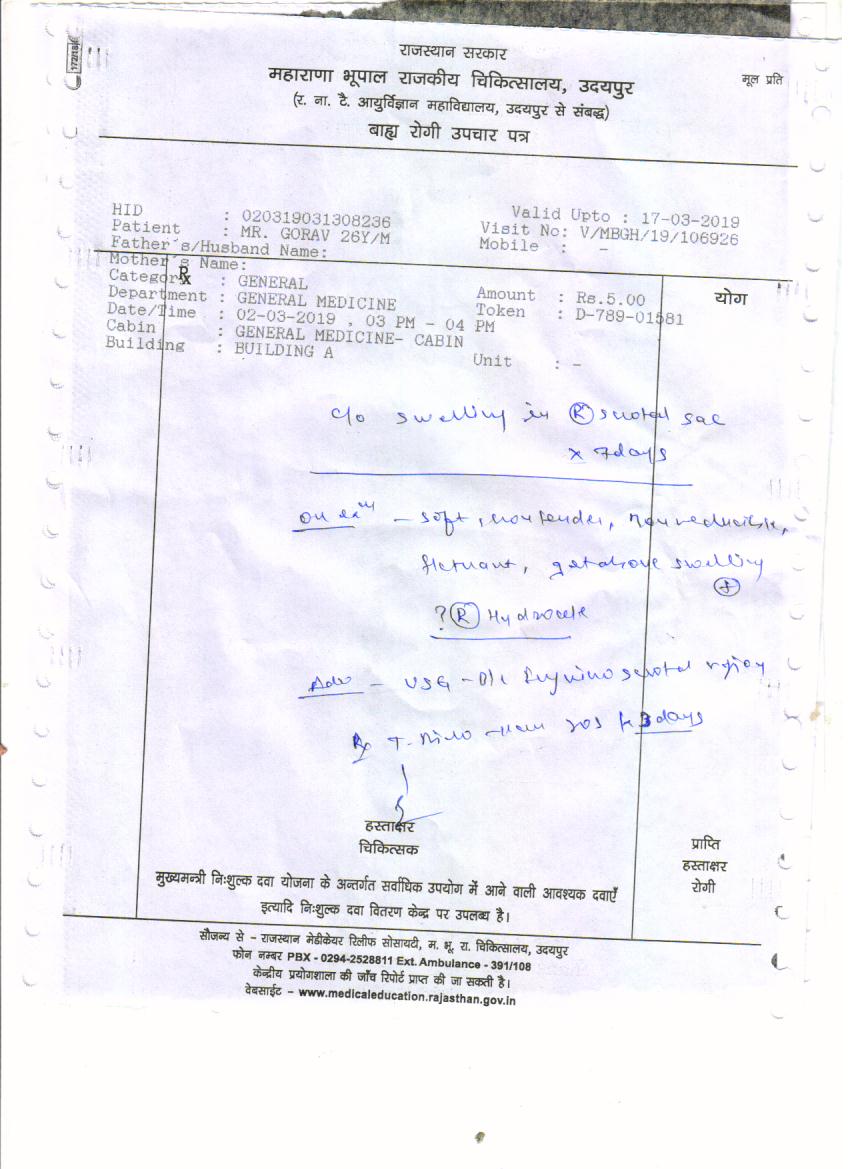 172/18/
राजस्थान सरकार
महाराणा भूपाल राजकीय चिकित्सालय, उदयपुर
मूल प्रति
(र. ना. टै. आयुर्विज्ञान महाविद्यालय, उदयपुर से संबद्ध)
बाह्य रोगी उपचार पत्र
HID : 020319031308236 Valid Upto : 17-03-2019
Patient : MR. GORAV 26Y/M Visit No: V/MBGH/19/106926
Father's/Husband Name: Mobile : -
Mother's Name:
Rx
Category : GENERAL Amount : Rs.5.00
योग
Department : GENERAL MEDICINE Token : D-789-01581
Date/Time : 02-03-2019 , 03 PM - 04 PM
Cabin : GENERAL MEDICINE- CABIN
Building : BUILDING A Unit : -
c/o swelling in (R) scrotal sac
x 7days
On exn - soft, nontender, nonreducible,
fluctuant, get above swelling
(+)
? (R) Hydrocele
Adv - USG - B/L Inguino scrotal region
Rx T.
days
हस्ताक्षर
चिकित्सक
प्राप्ति
हस्ताक्षर
रोगी
मुख्यमन्त्री निःशुल्क दवा योजना के अन्तर्गत सर्वाधिक उपयोग में आने वाली आवश्यक दवाएँ
इत्यादि निःशुल्क दवा वितरण केन्द्र पर उपलब्ध है।
सौजन्य से - राजस्थान मेडीकेयर रिलीफ सोसायटी, म. भू. रा. चिकित्सालय, उदयपुर
फोन नम्बर PBX - 0294-2528811 Ext. Ambulance - 391/108
केन्द्रीय प्रयोगशाला की जाँच रिपोर्ट प्राप्त की जा सकती है।
वेबसाईट - www.medicaleducation.rajasthan.gov.in